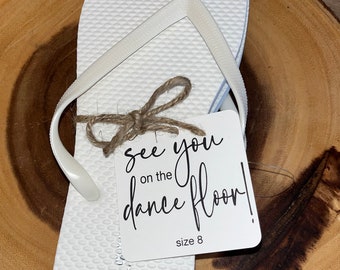 see you
on the
dance floor!
size 8